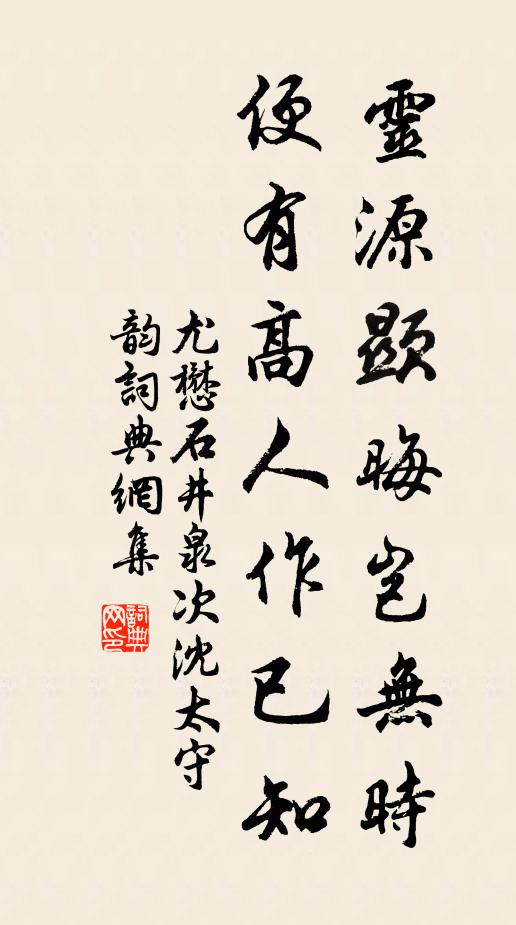 靈源顯晦豈無時
便有高人作已知
尤懋石井泉次沈太守
韵詞典網集
詞典網印